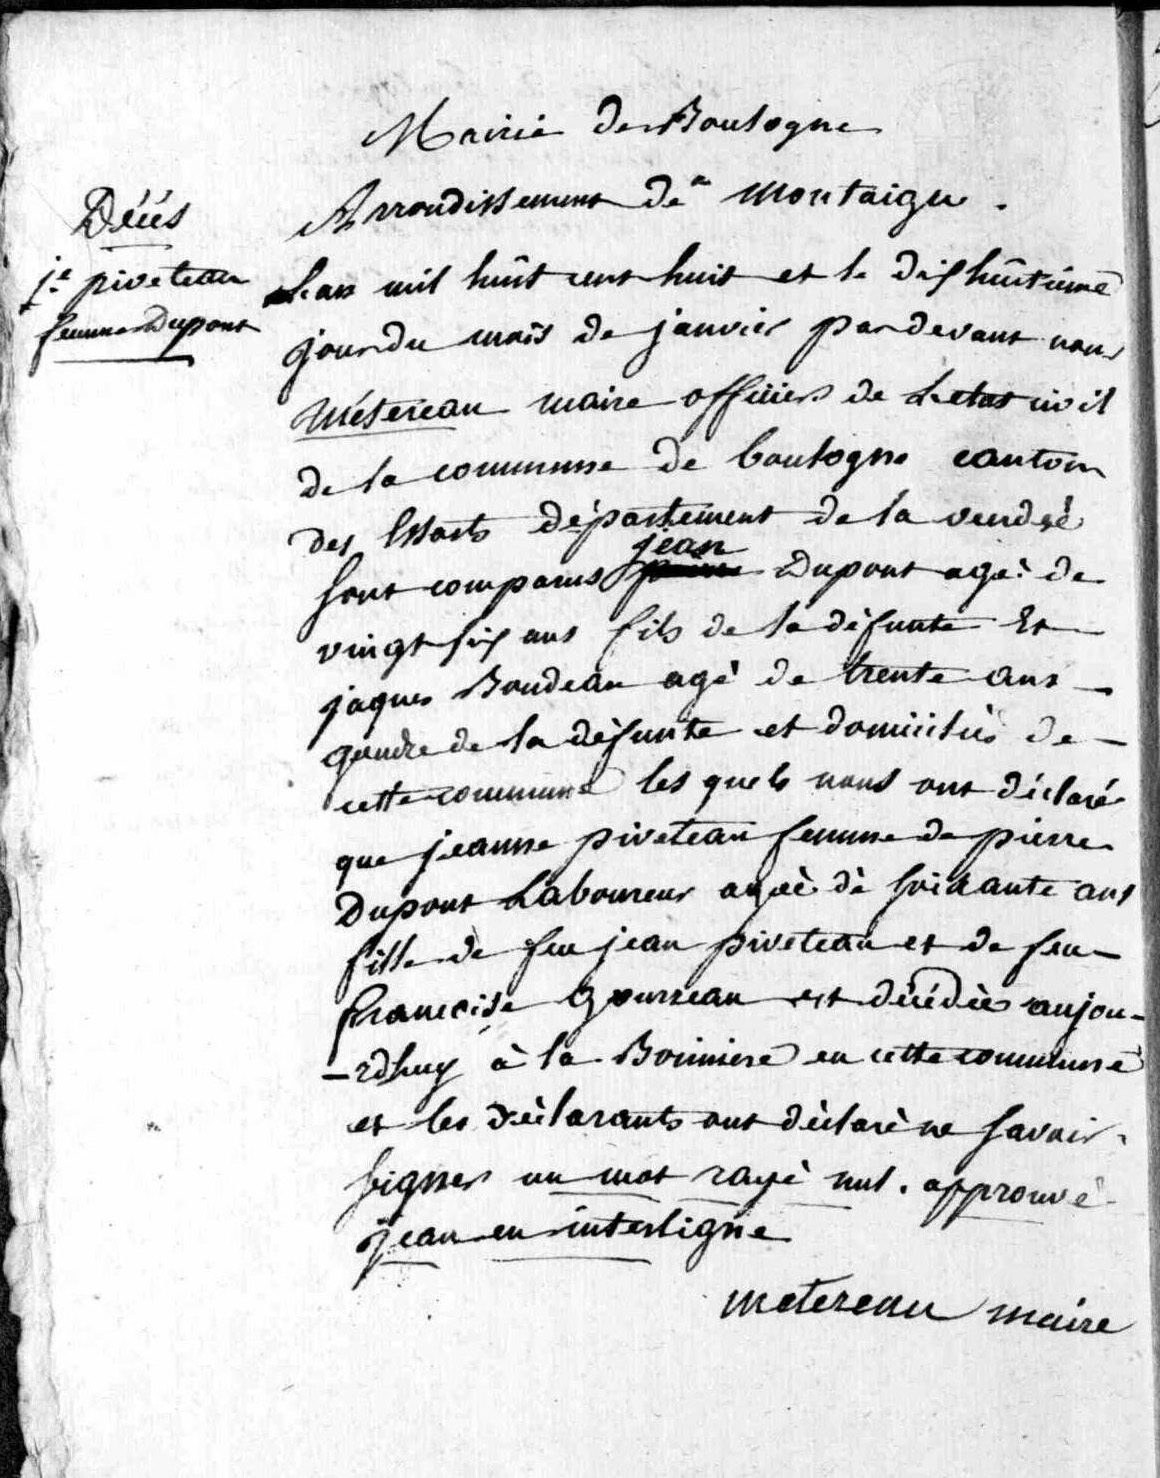 Mairie de Boulogne
Arrondissement de Montaigu.
Décès
je piveteau
femme Dupont
L'an mil huit cent huit et le dix huitieme
jour du mois de janvier par devant nous
Métereau maire officier de Letat civil
de la commune de boulogne canton
des Essarts département de la vendeé
sont comparus jean Dupont agé de
vingt six ans fils de la défunte Et
jaques Boudeau agé de trente ans
gendre de la défunte et domiciliés de
cette commune les quels nous ont déclaré
que jeanne piveteau femme de pierre
Dupont Laboureur ageé de soixante ans
fille de feu jean piveteau et de feu
francoise Gourreau est décédée aujou-
-rdhuy à la Boiniere en cette commune
et les déclarants ont déclaré ne savoir
signer un mot rayé nul. approuvé
jean en interligne
metereau maire